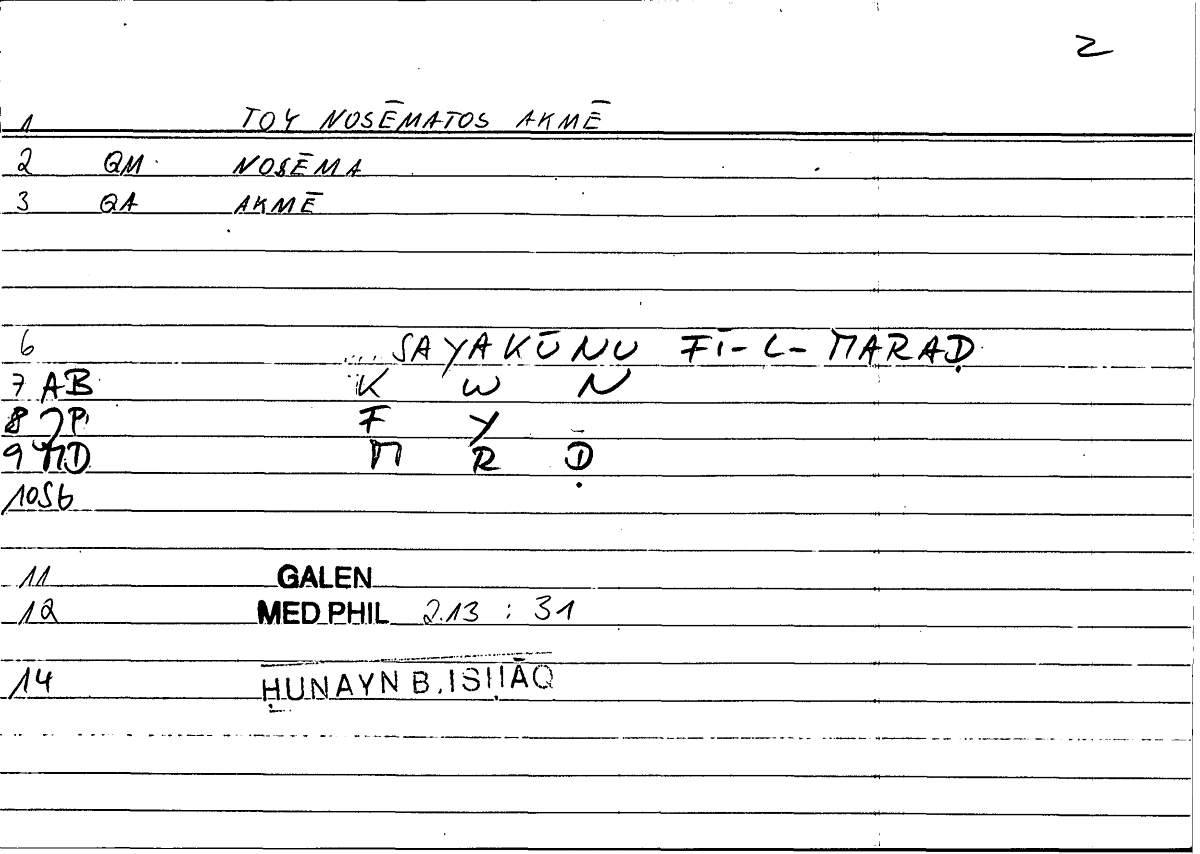 2
1 TOY NOSĒMATOS AKMĒ
2 QM NOSĒMA
3 QA AKMĒ
6 .... SAYAKŪNU FĪ-L-MARAḌ
7 AB K W N
8 P F Y
9 MD M R Ḍ
10 Sb
11 GALEN
12 MED PHIL 2.13 : 31
14 ḤUNAYN B. ISḤĀQ